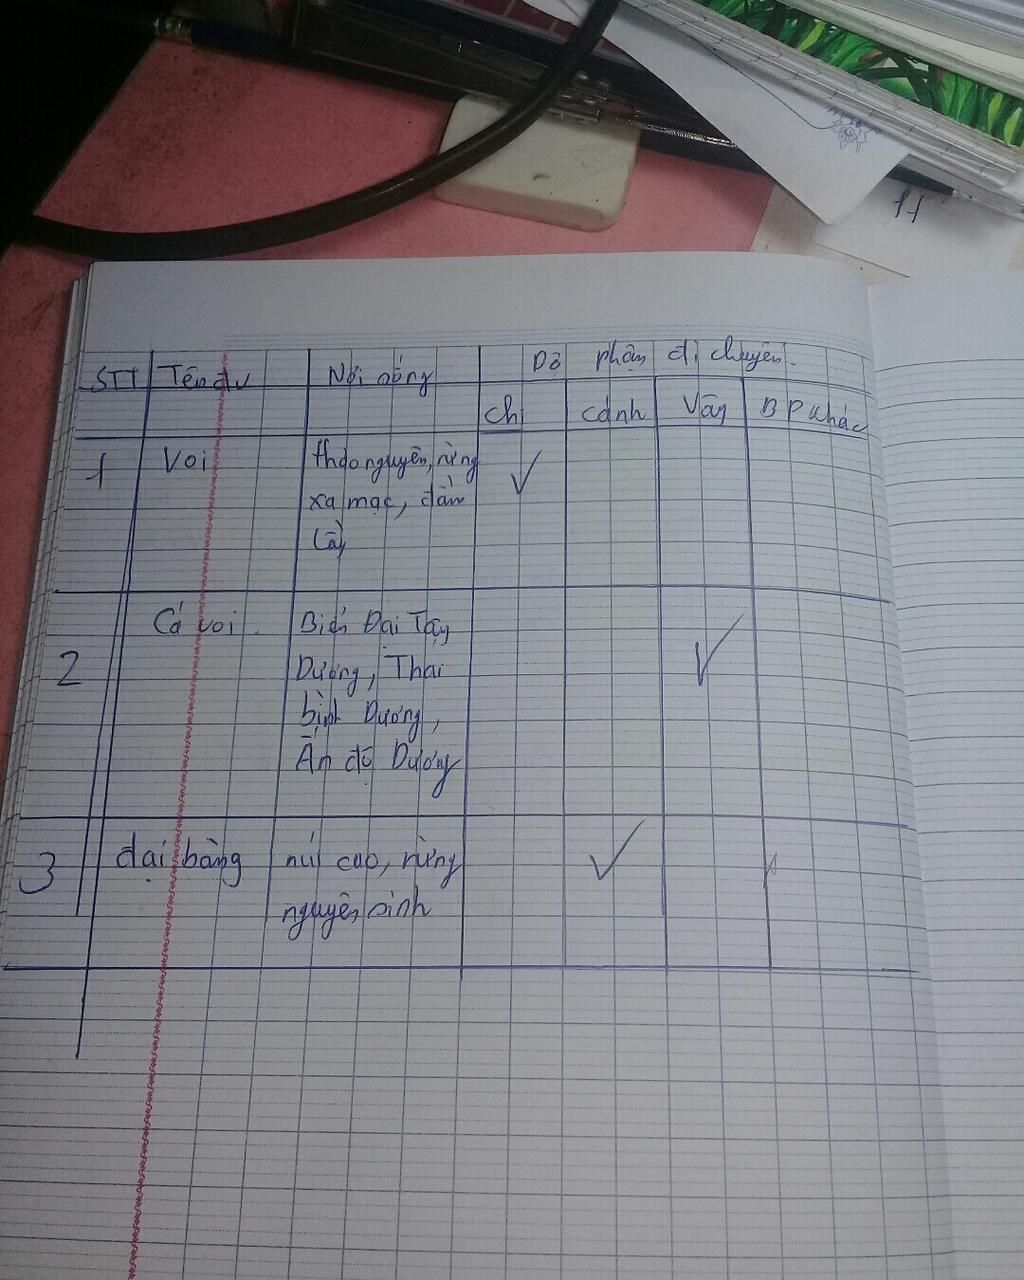 STT Tên đv Nơi sống Bộ phận di chuyển.
Chi cánh Vây BP khác
1 Voi thảo nguyên, rừng
xa mạc, đầm
lầy
Cá voi. Biển Đại Tây
2 Dương, Thái
bình Dương,
Ấn độ Dương
3 đại bàng núi cao, rừng
nguyên sinh